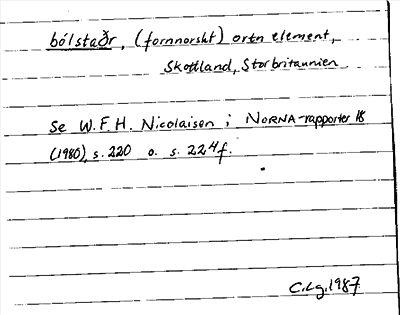 bólstaðr, (fornnorskt) ortn element,
Skottland, Storbritannien
Se W.F.H. Nicolaisen i NORNA-rapporter 18
(1980), s. 220 o. s. 224f.
C.Lg. 1987